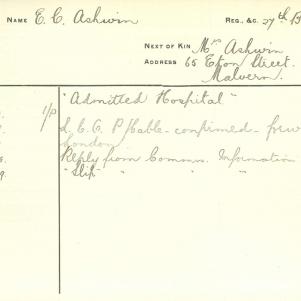 NAME E. C. Ashwin REG., &C. 27th B
NEXT OF KIN Mrs Ashwin
ADDRESS 65 Eton Street.
Malvern.
1/P "Admitted Hospital"
L. C. C. P. Cable - confirmed -
London
Reply from Commun. Information
9. "Slip" " "